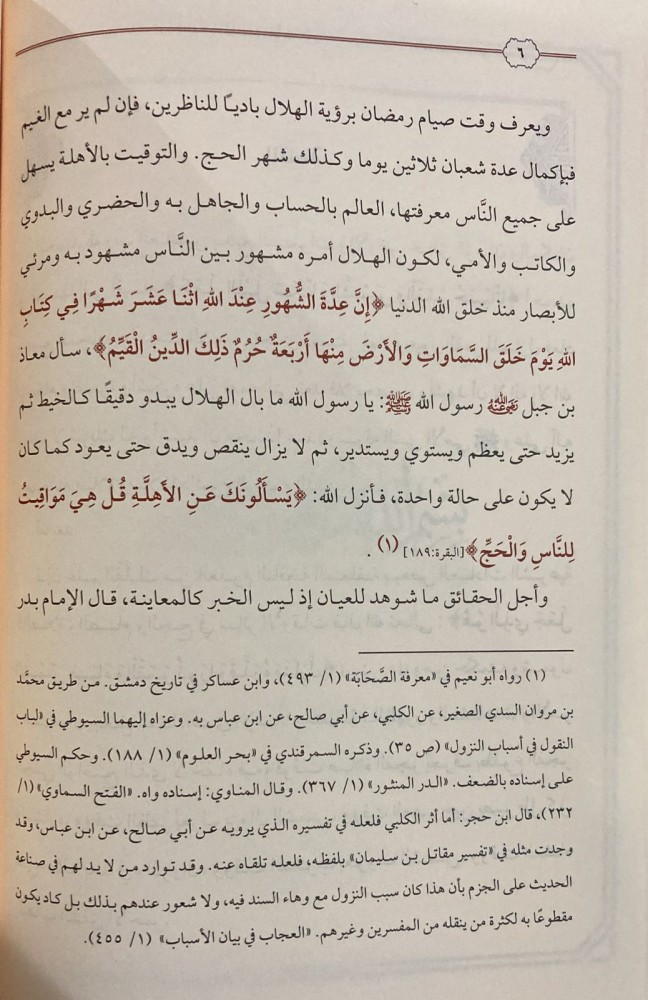 ٦
ويعرف وقت صيام رمضان برؤية الهلال باديًا للناظرين، فإن لم ير مع الغيم
فبإكمال عدة شعبان ثلاثين يوما وكذلك شهر الحج. والتوقيت بالأهلة يسهل
على جميع النَّاس معرفتها، العالم بالحساب والجاهل به والحضري والبدوي
والكاتب والأمي، لكون الهلال أمره مشهور بين النَّاس مشهود به ومرئي
للأبصار منذ خلق الله الدنيا ﴿إِنَّ عِدَّةَ الشُّهُورِ عِنْدَ اللهِ اثْنَا عَشَرَ شَهْرًا فِي كِتَابِ
اللهِ يَوْمَ خَلَقَ السَّمَاوَاتِ وَالْأَرْضَ مِنْهَا أَرْبَعَةٌ حُرُمٌ ذَلِكَ الدِّينُ الْقَيِّمُ﴾، سأل معاذ
بن جبل رضي الله عنه رسول الله ﷺ: يا رسول الله ما بال الهلال يبدو دقيقًا كالخيط ثم
يزيد حتى يعظم ويستوي ويستدير، ثم لا يزال ينقص ويدق حتى يعود كما كان
لا يكون على حالة واحدة، فأنزل الله: ﴿يَسْأَلُونَكَ عَنِ الأَهِلَّةِ قُلْ هِيَ مَوَاقِيتُ
لِلنَّاسِ وَالْحَجِّ﴾[البقرة:١٨٩] (١) .
وأجل الحقائق ما شوهد للعيان إذ ليس الخبر كالمعاينة، قال الإمام بدر
(١) رواه أبو نعيم في «معرفة الصَّحَابَة» (١/ ٤٩٣)، وابن عساكر في تاريخ دمشق. من طريق محمَّد
بن مروان السدي الصغير، عن الكلبي، عن أبي صالح، عن ابن عباس به. وعزاه إليهما السيوطي في «لباب
النقول في أسباب النزول» (ص ٣٥). وذكره السمرقندي في «بحر العلوم» (١/ ١٨٨). وحكم السيوطي
على إسناده بالضعف. «الدر المنثور» (١/ ٣٦٧). وقال المناوي: إسناده واه. «الفتح السماوي» (١/
٢٣٢)، قال ابن حجر: أما أثر الكلبي فلعله في تفسيره الذي يرويه عن أبي صالح، عن ابن عباس، وقد
وجدت مثله في «تفسير مقاتل بن سليمان» بلفظه، فلعله تلقاه عنه. وقد توارد من لا يد لهم في صناعة
الحديث على الجزم بأن هذا كان سبب النزول مع وهاء السند فيه، ولا شعور عندهم بذلك بل كاد يكون
مقطوعًا به لكثرة من ينقله من المفسرين وغيرهم. «العجاب في بيان الأسباب» (١/ ٤٥٥).